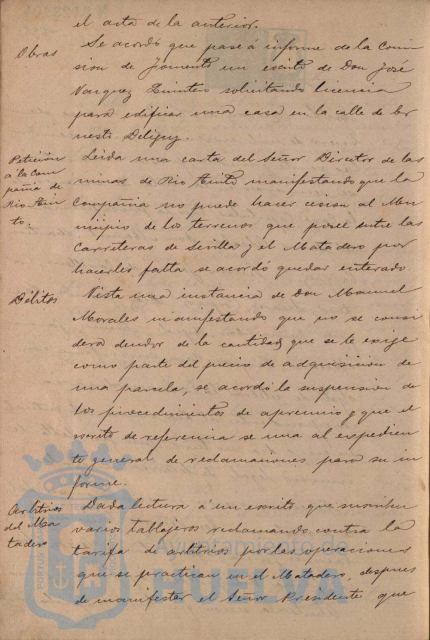 el acta de la anterior.
Obras
Se acordó que pase á informe de la Comi
sion de Fomento un escrito de Don José
Vazquez Quintero solicitando licencia
para edificar una casa en la calle de Er
nesto Deligny.
Petición
á la Com
pañia de
Rio Tin
to.
Leida una carta del Señor Director de las
minas de Rio Tinto manifestando que la
Compañia no puede hacer cesion al Mu
nicipio de los terrenos que posee entre las
carreteras de Sevilla y el Matadero por
hacerles falta se acordó quedar enterado
Débitos
Vista una instancia de Don Manuel
Morales manifestando que no se consi
dera deudor de la cantidad que se le exige
como parte del precio de adquisicion de
una parcela, se acordó la suspension de
los procedimientos de apremio y que el
escrito de referencia se una al expedien
te general de reclamaciones para su in
forme.
Arbitrios
del Ma
tadero
Dada lectura á un escrito que suscriben
varios tablajeros reclamando contra la
tarifa de arbitrios por las operaciones
que se practican en el Matadero, despues
de manifestar el Señor Presidente que
Ayuntamiento de
HUELVA